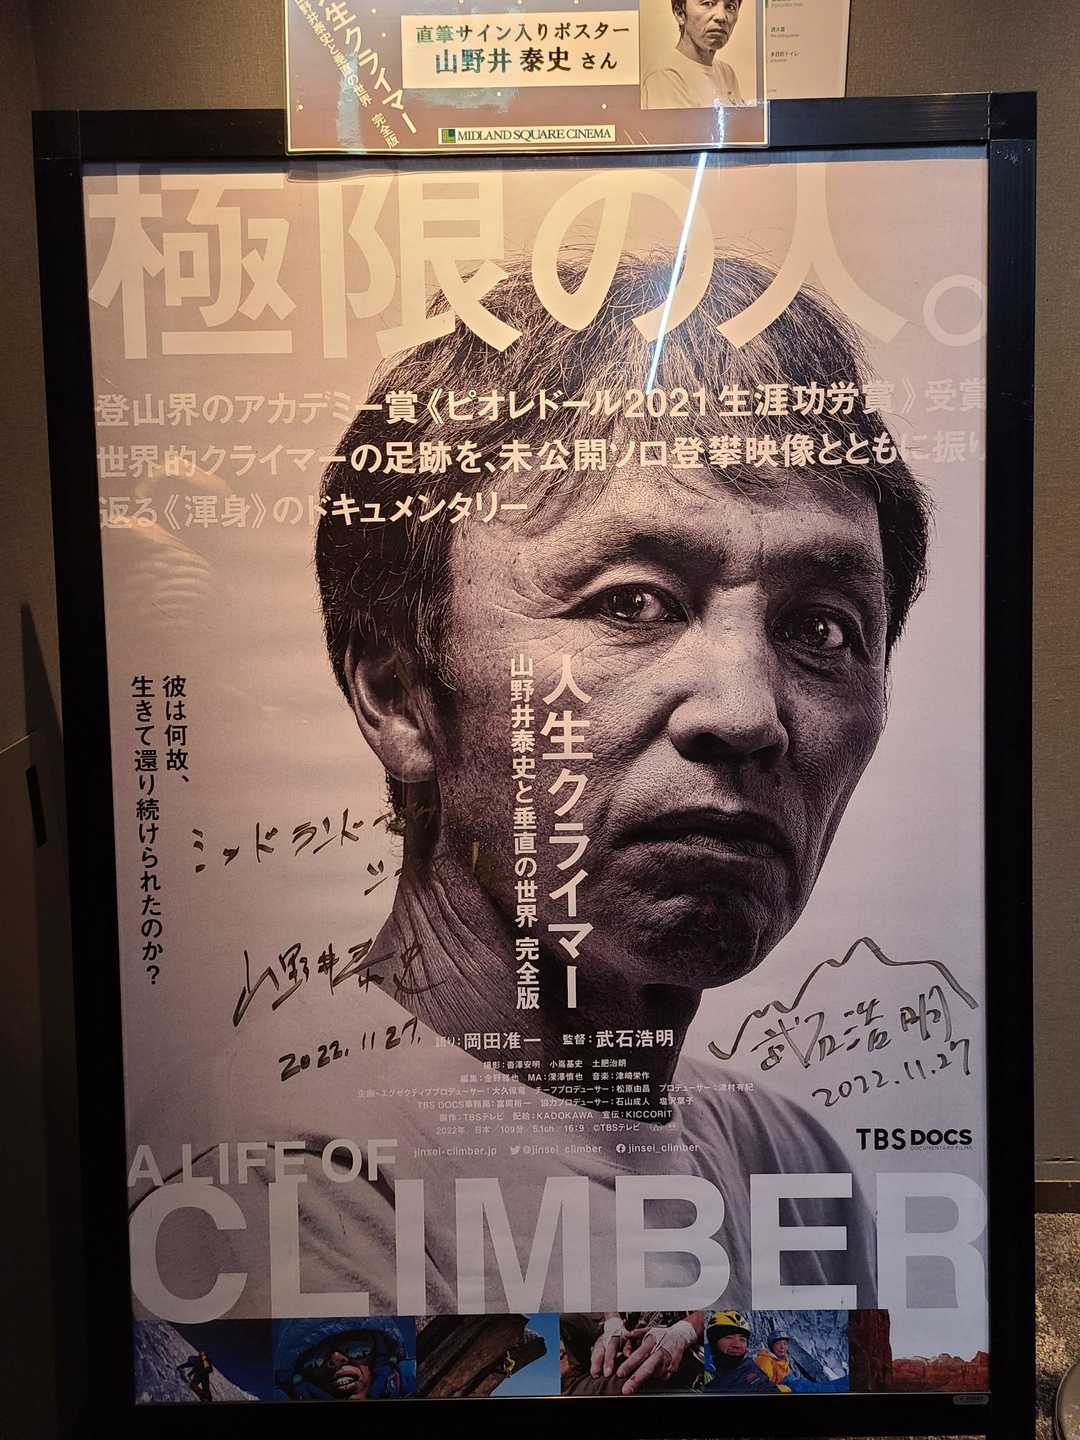 直筆サイン入りポスター
山野井 泰史 さん
生クライマー
山野井泰史と垂直の世界 完全版
MIDLAND SQUARE CINEMA
極限の人。
登山界のアカデミー賞《ピオレドール2021生涯功労賞》受賞
世界的クライマーの足跡を、未公開ソロ登攀映像とともに振り
返る《渾身》のドキュメンタリー
人生クライマー
山野井泰史と垂直の世界 完全版
彼は何故、
生きて還り続けられたのか?
ミッドランド
山野井泰史
2022.11.27.
武石浩明
2022.11.27
語り:岡田准一 監督:武石浩明
撮影:沓澤安明 小嶌基史 土肥治朗
編集:金野雅也 MA:深澤慎也 音楽:津崎栄作
企画・エグゼクティブプロデューサー:大久保竜 チーフプロデューサー:松原由昌 プロデューサー:津村有紀
TBS DOCS事務局:富岡裕一 協力プロデューサー:石山成人 塩沢葉子
製作:TBSテレビ 配給:KADOKAWA 宣伝:KICCORIT
2022年/日本/109分/5.1ch/16:9 ©TBSテレビ
jinsei-climber.jp @jinsei_climber jinsei_climber
TBS DOCS
DOCUMENTARY FILMS
A LIFE OF
CLIMBER